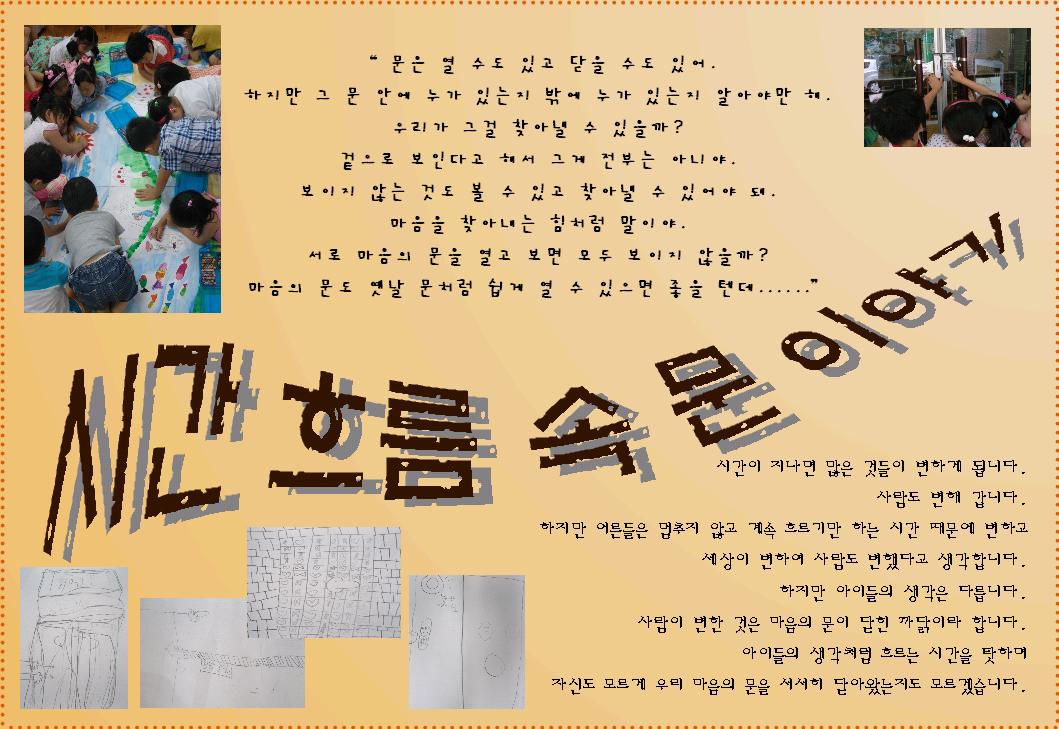 “ 문은 열 수도 있고 닫을 수도 있어.
하지만 그 문 안에 누가 있는지 밖에 누가 있는지 알아야만 해.
우리가 그걸 찾아낼 수 있을까?
겉으로 보인다고 해서 그게 전부는 아니야.
보이지 않는 것도 볼 수 있고 찾아낼 수 있어야 돼.
마음을 찾아내는 힘처럼 말이야.
서로 마음의 문을 열고 보면 모두 보이지 않을까?
마음의 문도 옛날 문처럼 쉽게 열 수 있으면 좋을 텐데......”
시간 흐름 속 문 이야기
시간이 지나면 많은 것들이 변하게 됩니다.
사람도 변해 갑니다.
하지만 어른들은 멈추지 않고 계속 흐르기만 하는 시간 때문에 변하고
세상이 변하여 사람도 변했다고 생각합니다.
하지만 아이들의 생각은 다릅니다.
사람이 변한 것은 마음의 문이 닫힌 까닭이라 합니다.
아이들의 생각처럼 흐르는 시간을 탓하며
자신도 모르게 우리 마음의 문을 서서히 닫아왔는지도 모르겠습니다.